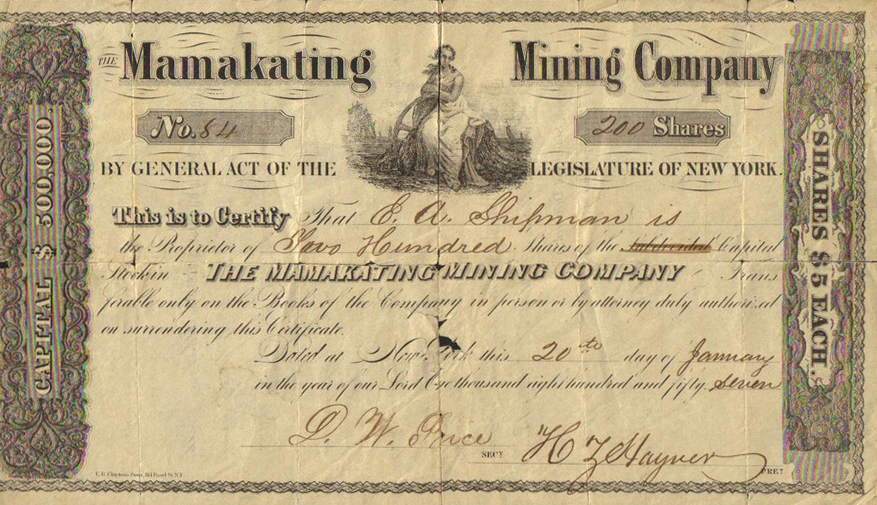 THE Mamakating Mining Company
No. 84 200 Shares
BY GENERAL ACT OF THE LEGISLATURE OF NEW YORK.
This is to Certify That E. A. Shipman is
the Proprietor of Two Hundred Shares of the Capital
Stock in THE MAMAKATING MINING COMPANY Trans
ferable only on the Books of the Company in person or by attorney duly authorized
on surrendering this Certificate.
Dated at New York this 20th day of January
in the year of our Lord One thousand eight hundred and fifty seven
D. W. Price SECY H Z Hayner PRET
CAPITAL $ 500,000
SHARES $5 EACH.